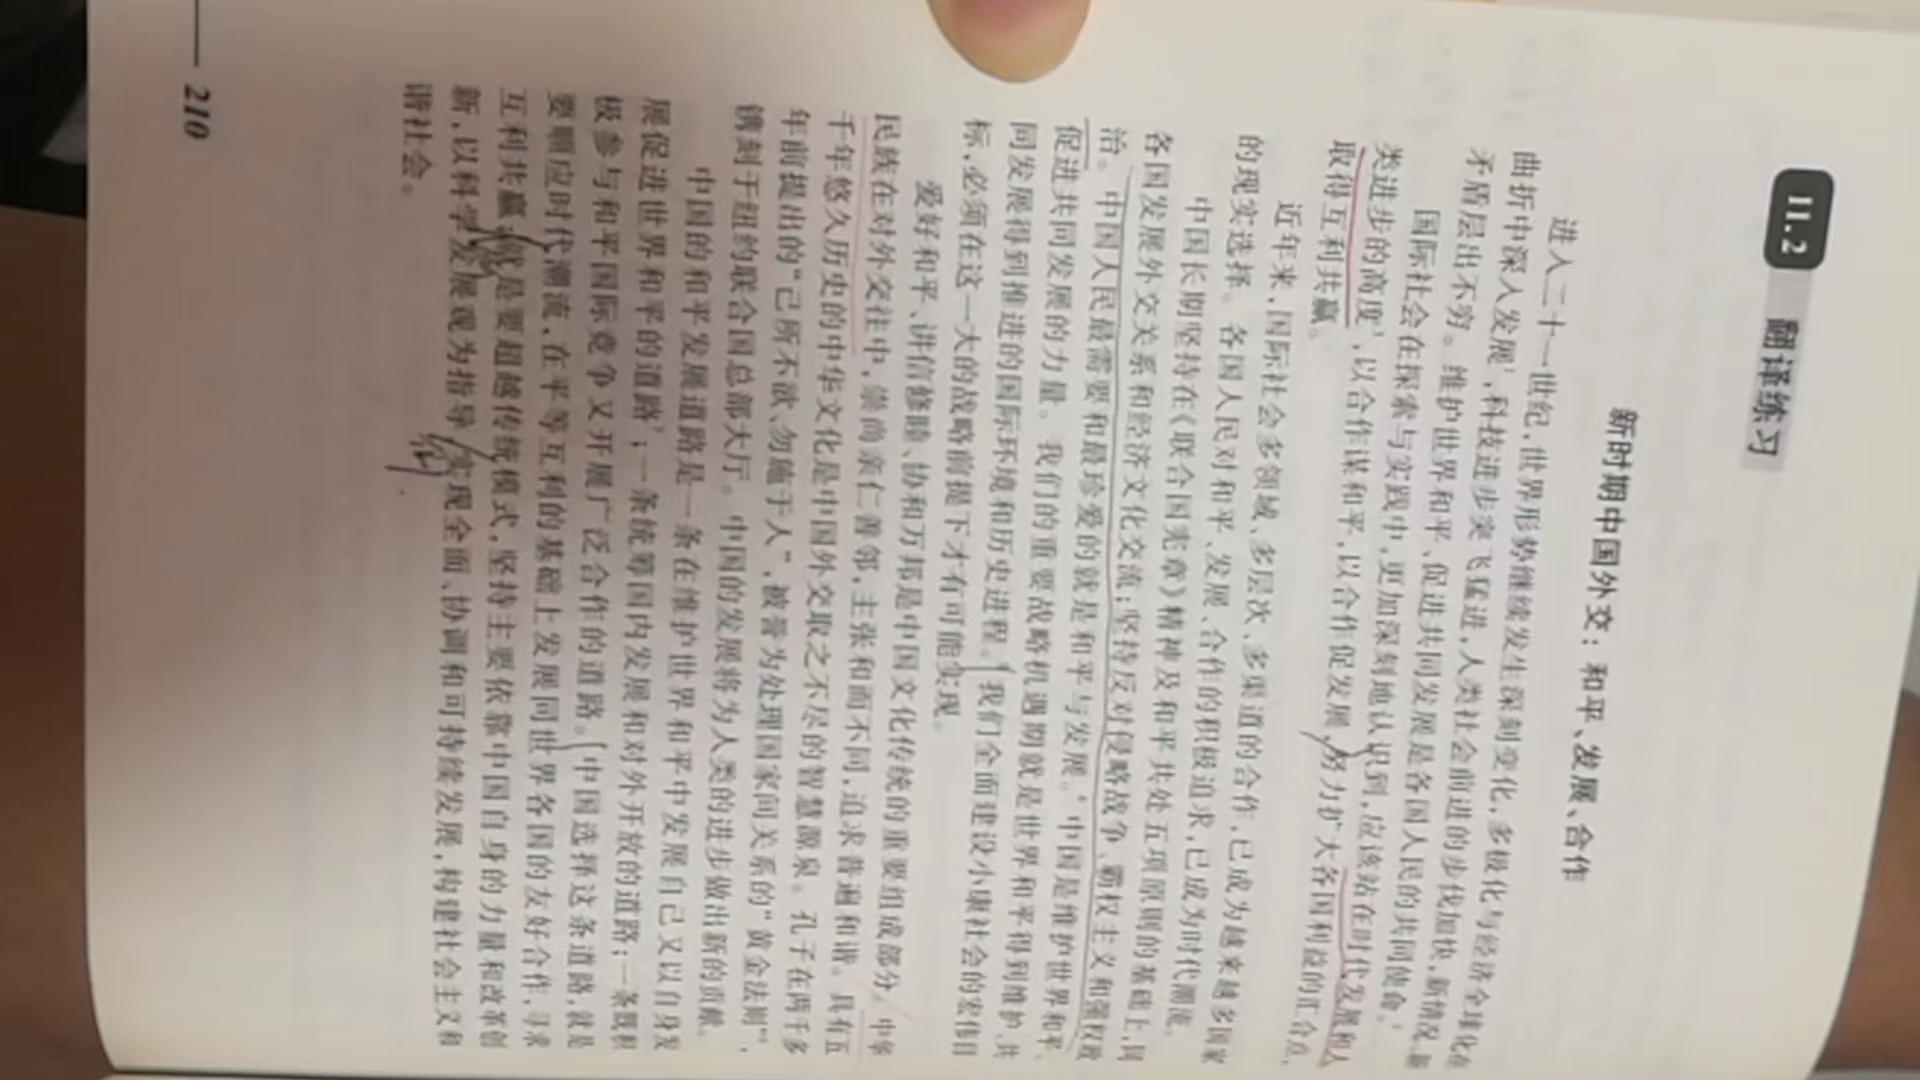 11.2 翻译练习
新时期中国外交：和平、发展、合作
进入二十一世纪，世界形势继续发生深刻变化，多极化与经济全球化在
曲折中深入发展，科技进步突飞猛进，人类社会前进的步伐加快，新情况、新
矛盾层出不穷。维护世界和平、促进共同发展是各国人民的共同使命。
国际社会在探索与实践中，更加深刻地认识到，应该站在时代发展和人
类进步的高度，以合作谋和平，以合作促发展，努力扩大各国利益的汇合点，
取得互利共赢。
近年来，国际社会多领域、多层次、多渠道的合作，已成为越来越多国家
的现实选择。各国人民对和平、发展、合作的积极追求，已成为时代潮流。
中国长期坚持在《联合国宪章》精神及和平共处五项原则的基础上，同
各国发展外交关系和经济文化交流；坚持反对侵略战争、霸权主义和强权政
治。中国人民最需要和最珍爱的就是和平与发展。中国是维护世界和平、
促进共同发展的力量。我们的重要战略机遇期就是世界和平得到维护、共
同发展得到推进的国际环境和历史进程。我们全面建设小康社会的宏伟目
标，必须在这一大的战略前提下才有可能实现。
爱好和平、讲信修睦、协和万邦是中国文化传统的重要组成部分。中华
民族在对外交往中，崇尚亲仁善邻，主张和而不同，追求普遍和谐。具有五
千年悠久历史的中华文化是中国外交取之不尽的智慧源泉。孔子在两千多
年前提出的“己所不欲，勿施于人”，被誉为处理国家间关系的“黄金法则”，
镌刻于纽约联合国总部大厅。中国的发展将为人类的进步做出新的贡献。
中国的和平发展道路是一条在维护世界和平中发展自己又以自身发
展促进世界和平的道路；一条统筹国内发展和对外开放的道路；一条既积
极参与和平国际竞争又开展广泛合作的道路。中国选择这条道路，就是
要顺应时代潮流，在平等互利的基础上发展同世界各国的友好合作，寻求
互利共赢；就是要超越传统模式，坚持主要依靠中国自身的力量和改革创
新，以科学发展观为指导，实现全面、协调和可持续发展，构建社会主义和
谐社会。
210